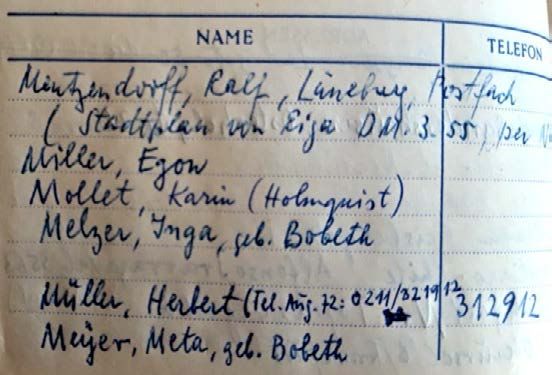 NAME TELEFON
Mintzendorff, Ralf, Lüneburg, Postfach
( Stadtplan von Riga DM. 3.55, per
Miller, Egon
Mollet, Karin (Holmquist)
Melzer, Inga, geb. Bobeth
Müller, Herbert (Tel. Aug. 72: 0211/321912 312912
Meyer, Meta, geb. Bobeth